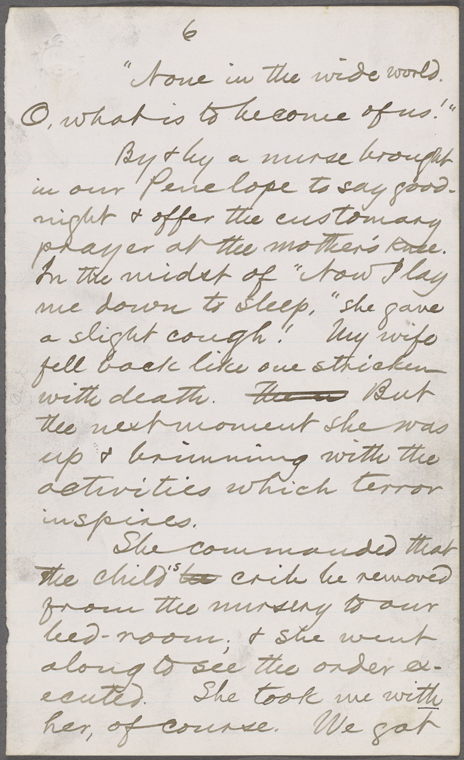 6
"None in the wide world.
O, what is to become of us!"
By & by a nurse brought
in our Penelope to say good-
night & offer the customary
prayer at the mother's knee.
In the midst of "Now I lay
me down to sleep," she gave
a slight cough! My wife
fell back like one stricken
with death. But
the next moment she was
up & brimming with the
activities which terror
inspires.
She commanded that
the child's crib be removed
from the nursery to our
bed-room; & she went
along to see the order ex-
ecuted. She took me with
her, of course. We got